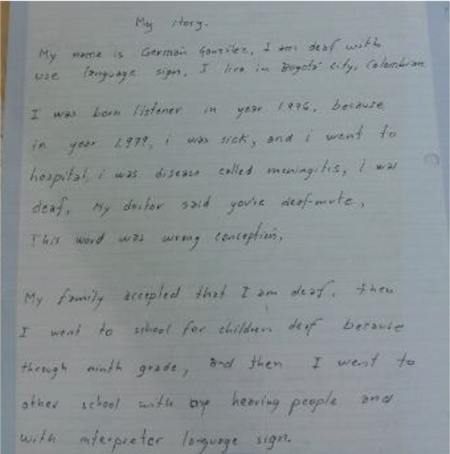 My story.
My name is Germán González, I am deaf with
use language sign, I live in Bogotá city, Colombian
I was born listener in year 1976, because
in year 1979, i was sick, and i went to
hospital, i was disease called meningitis, I was
deaf, My doctor said you're deaf-mute,
This word was wrong conception,
My family accepted that I am deaf, then
I went to school for children deaf because
through ninth grade, and then I went to
other school with hearing people and
with interpreter language sign.